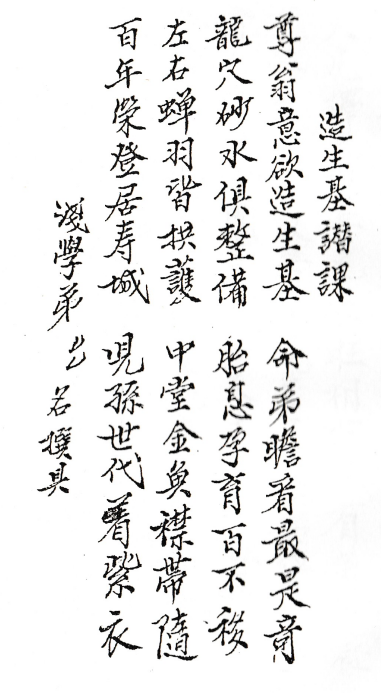 造生基譛課
尊翁意欲造生基 命弟瞻看最是奇
龍穴砂水俱整備 胎息孕育百不移
左右蟬羽皆拱護 中堂金魚襟帶隨
百年榮登居寿城 児孫世代着紫衣
淺學弟 名撰具